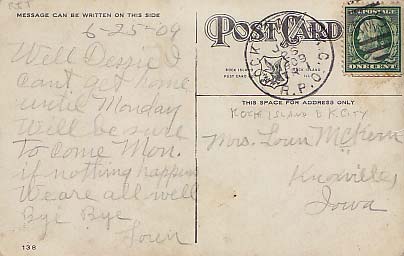 MESSAGE CAN BE WRITTEN ON THIS SIDE
6-25-09
Well Dessie I
cant get home
until Monday
Will be sure
to come Mon.
if nothing happens
We are all well
Bye Bye
Loren
138
POST CARD
ROCK ISLAND
POST CARD
R.P.O.
ONE CENT
THIS SPACE FOR ADDRESS ONLY
ROCK ISLAND & K. CITY
Mrs. Loren McKern
Knoxville,
Iowa